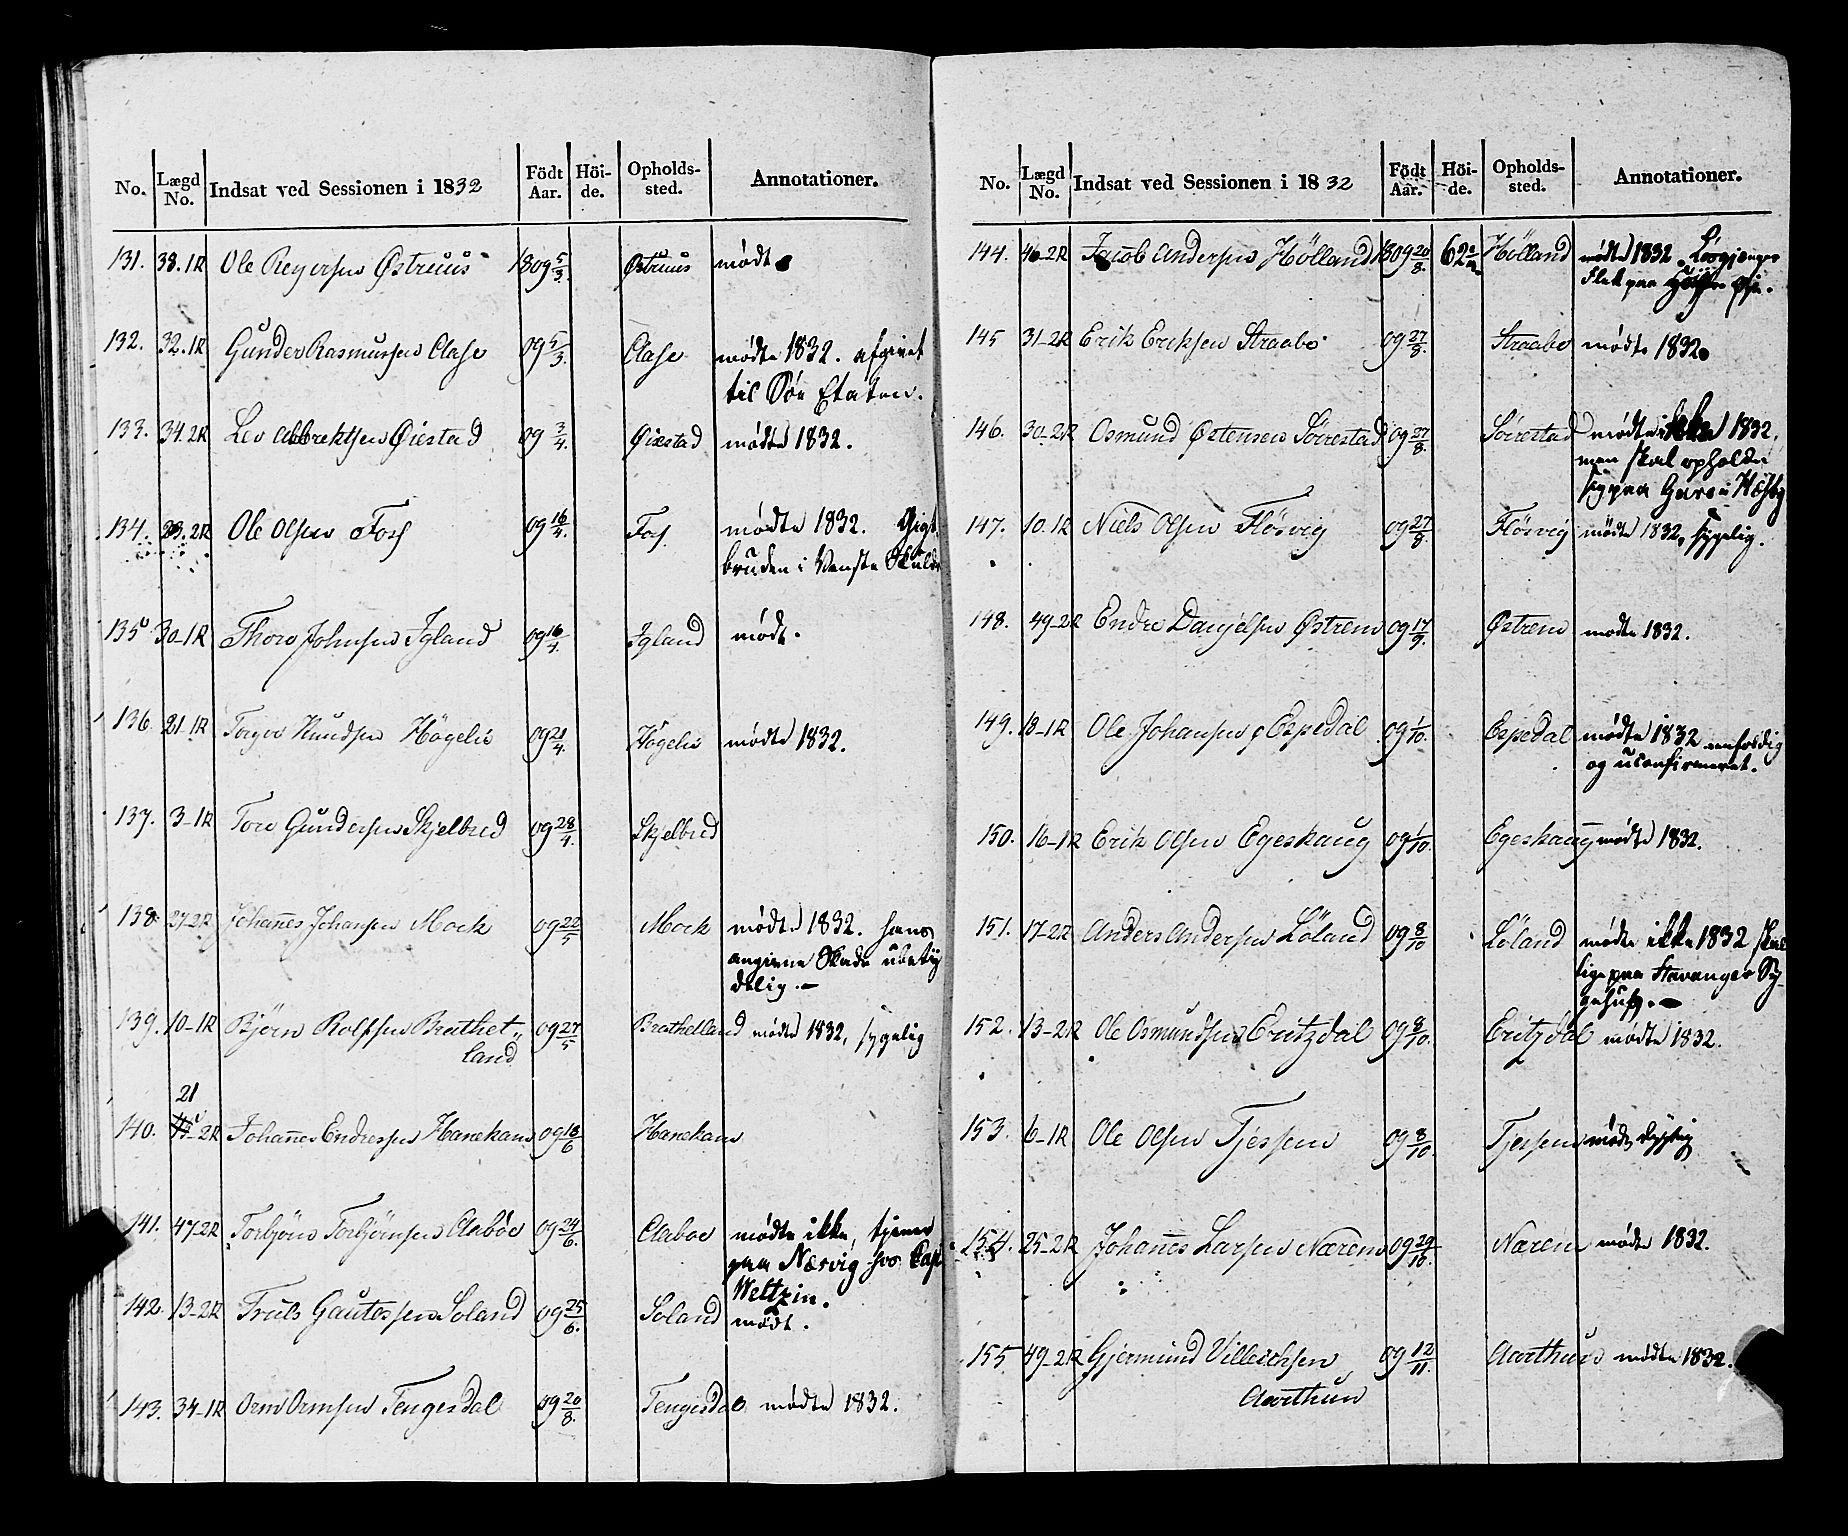 No. Lægd No. Indsat ved Sessionen i 1832 Födt Aar. Höi-de. Opholds-sted. Annotationer.
131. 38.1R Ole Reyersen Østruus 1809 5/3 Østruus mödt
132. 32.1R Gunder Rasmussen Aase 09 5/3. Aase mödte 1832. afgivet
til Söe Etaten.
133. 34.2R Lev Albrektsen Øiestad 09 3/4. Øiestad mödte 1832.
134. 23.2R Ole Olsen Foss 09 16/4. Fos. mödte 1832. Gigt
bruden i Venste Skuld
135 30-1R Thore Johnsen Igland 09 16/4. Igland mödt.
136. 21-1R Torger Knudsen Högelie 09 21/4. Högelie mödte 1832.
137. 3-1R Tore Gundersen Skjelbred 09 28/4. Skjelbred
138. 27-2R Johannes Johansen Moek 09 22/5 Moek mödte 1832. hans
angivne Skade ubetÿ
delig.-
139. 10-1R Björn Rolfsen Brathet" 09 27/5 Brathetland mödte 1832, sygelig
land
21
140. 45-2R Johannes Endresen Hanekam 09 18/6 Hanekam
141. 47-2R Torbjörn Torbjörnsen Aaböe 09 24/6. Aaboe mödte ikke, tjener
paa Næsvig hos Cap
Weltzin.
142. 13-2R Truls Gautesen Soland 09 25/6. Soland mödt.
143. 34-1R Orm Ormsen Tengesdal 09 20/8. Tengesdal mödte 1832.
No. Lægd No. Indsat ved Sessionen i 1832 Födt Aar. Höi-de. Opholds-sted. Annotationer.
144. 46-2R Jacob Andersen Hölland 1809 20/8. 62 Hölland mödte 1832. Lösgjænger
Flek paa Höyre Øje.
145 31-2R Erik Eriksen Straabo 09 27/8. Straabo mödte 1832
146. 30-2R Osmund Østensen Söirestad 09 27/8. Söirestad mödte ikke 1832,
men skal opholde
sig paa Gare i
147. 10.1R Niels Olsen Flösvig 09 27/8. Flösvig mödte 1832, sygelig.
148. 49-2R Endre Danjelsen Østrem 09 17/9. Østrem mødte 1832.
149. 18-1R Ole Johansen Espedal 09 1/10. Espedal mödte 1832 eenfoldig
og uconfirmeret.
150. 16-1R Erik Olsen Egeskaug 09 1/10. Egeskaug mödte 1832.
151. 17-2R Anders Andersen Löland 09 8/10 Löland mödte ikke 1832 skal
lige paa Stavanger Sÿ-
gehuus.-
152. 13-2R Ole Osmundsen Eritzdal 09 8/10. Eritzdal mödte 1832.
153. 6-1R Ole Olsen Tjessem 09 8/10. Tjessem mödt, dygtig
154. 25-2R Johannes Larsen Nærem 09 29/10. Nærem mödte 1832.
155 49-2R Gjermund Villechsen 09 12/11. Aarthun mödte 1832.
Aarthun